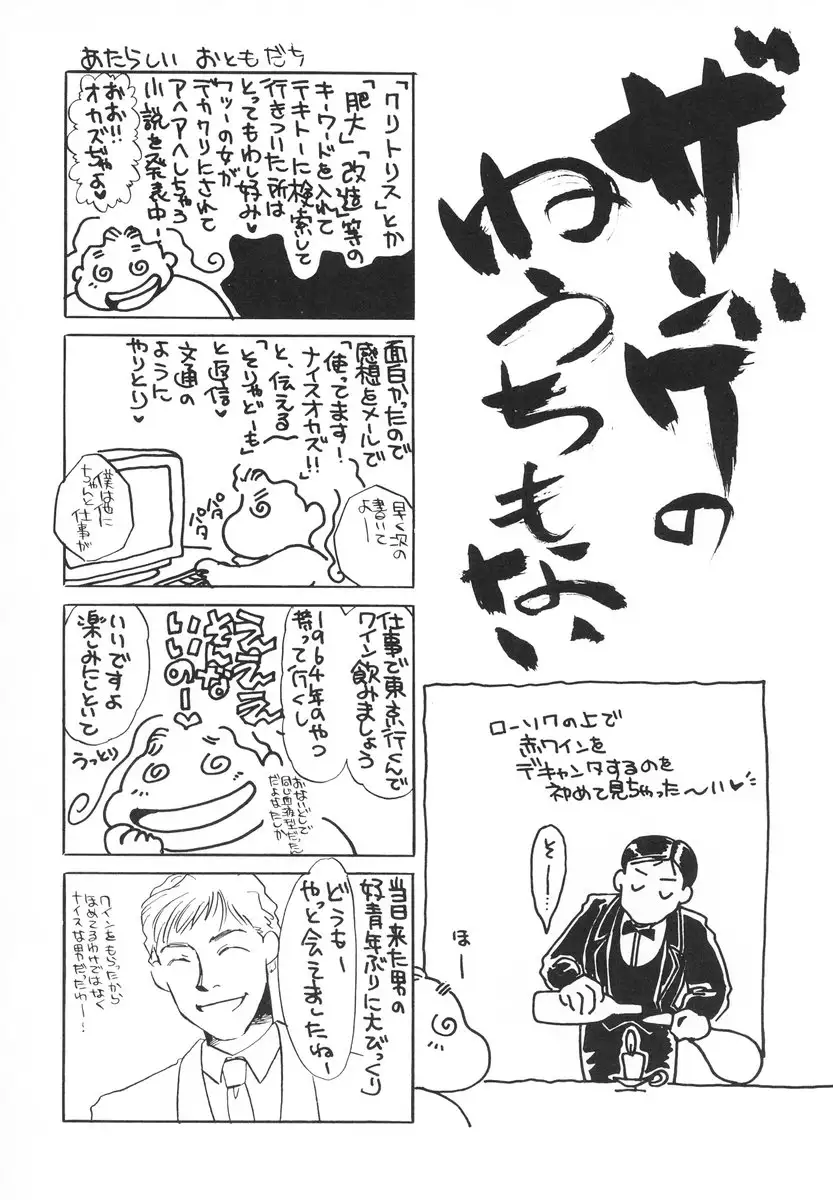 ザンゲの
ねうちもない
あたらしい おともだち
「クリトリス」とか
「肥大」「改造」等の
キーワードを入れて
テキトーに検索して
行きついた所は
とってもわし好み♥
フツーの女が
デカクリにされて
アヘアヘしちゃう
小説を発表中ー
おお!!
オカズぢゃよ♥
面白かったので
感想をメールで
「使ってます!
ナイスオカズ!!」
と、伝える
「そりゃどーも」
と返信♥
文通の
ように
やりとり♥
早く次の
書いて
よー
パタパタ
僕は他に
ちゃんと仕事が
仕事で東京行くんで
ワイン飲みましょう
1964年のやつ
持って行くし
えええ
そんな
いいの〜♥
おないどしで
同じ血液型だったん
だよなたしか
いいですよ
楽しみにしといて
うっとり
当日来た男の
好青年ぶりに大びっくり
どうもー
やっと会えましたねー
ワインをもらったから
ほめてるわけではなく
ナイスな男だったわー!
ローソクの上で
赤ワインを
デキャンタするのを
初めて見ちゃった〜い♥
そー…
ほー